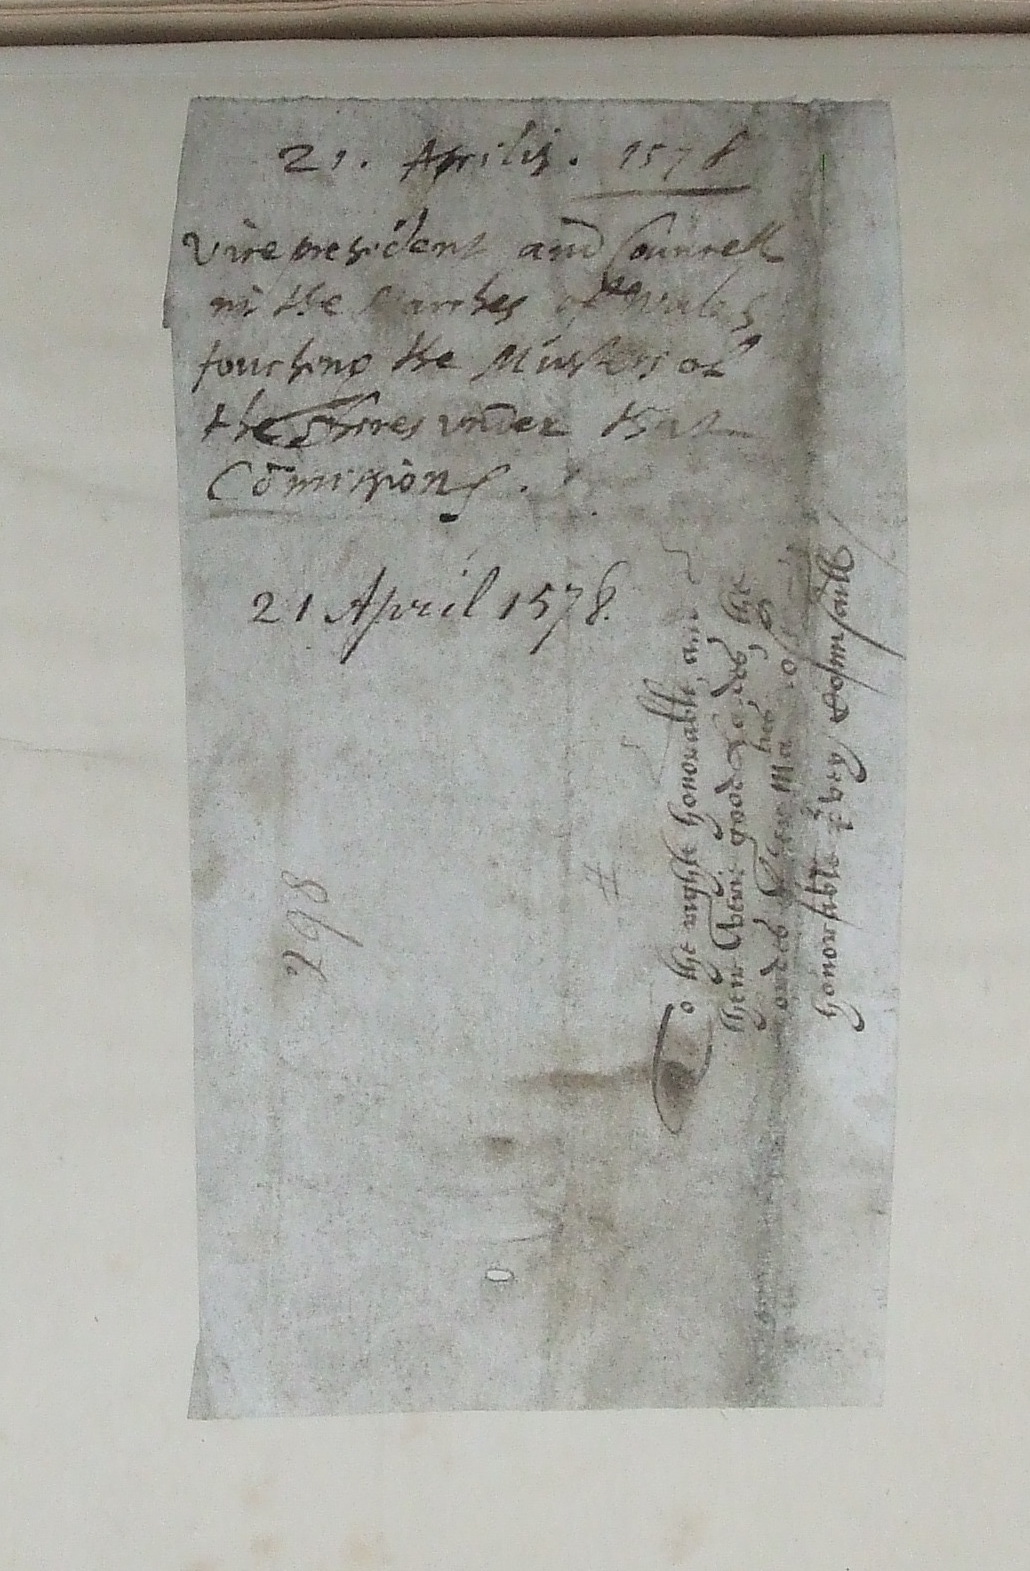 21. Aprilis. 1578
Vicepresident and Counsell
in the Marches of Wales
touching the Musters of
the Shires under that
Comission.
21 April 1578.
To the right honorable, and
their verie good Lordes, the
Lordes of her Ma ties
honorable prvey Counsaill